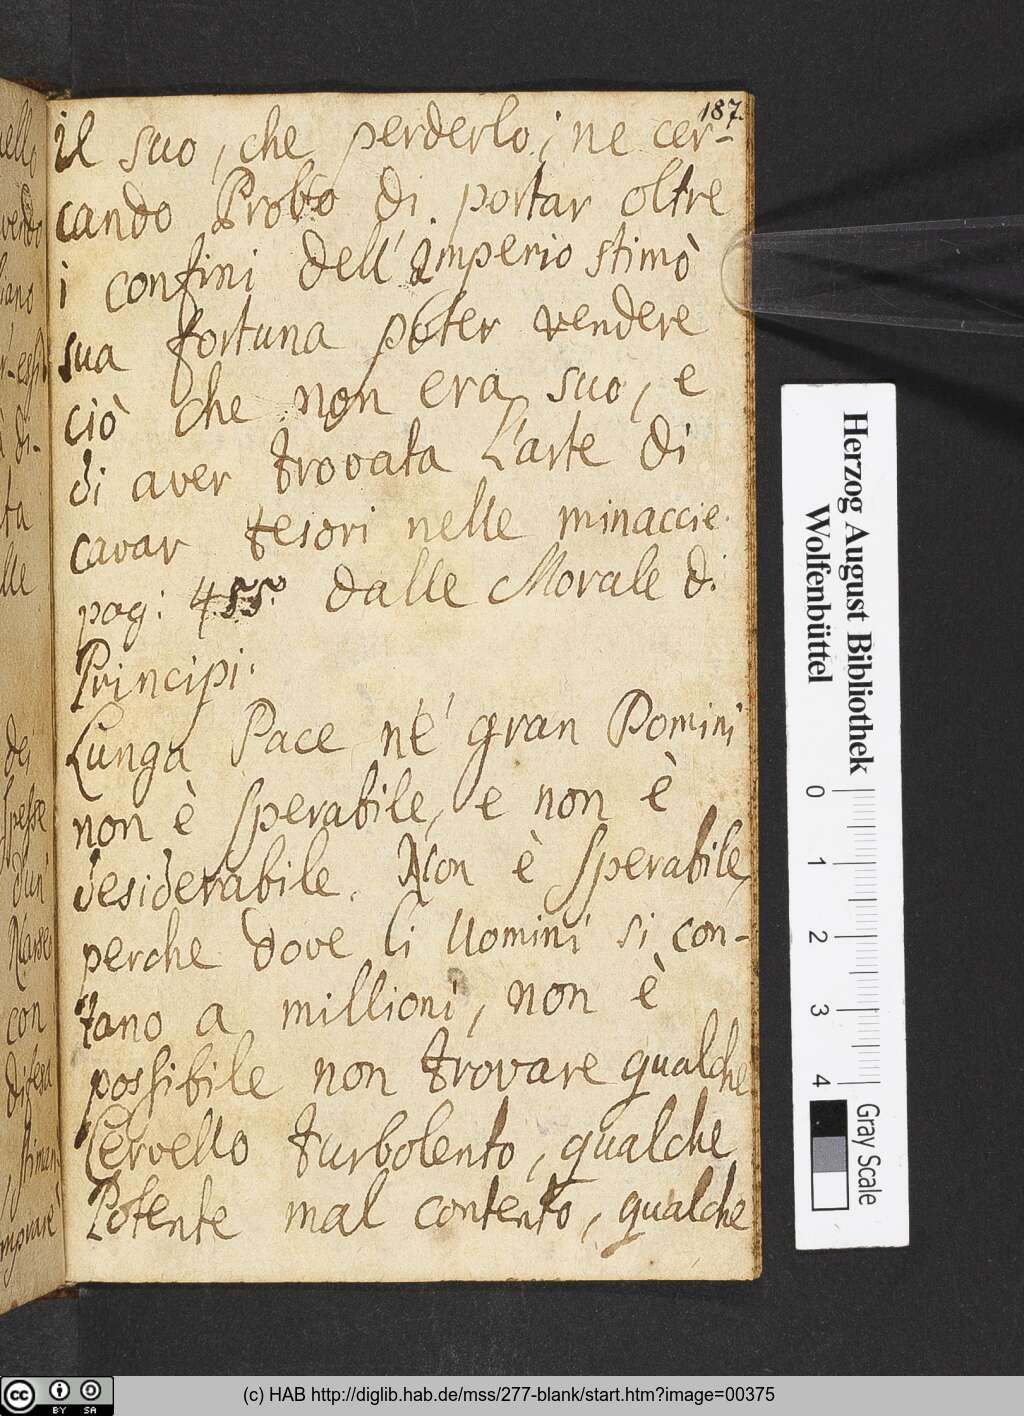 187.
il suo, che perderlo; ne cer-
cando Probo di portar oltre
i confini dell'Imperio stimò
sua fortuna poter vendere
ciò che non era suo, e
di aver trovata l'arte di
cavar tesori nelle minaccie.
pag: 455. dalle Morale di
Principi.
Lunga Pace né gran Domini
non è sperabile, e non è
desiderabile. Non è sperabile,
perche dove li Uomini si con-
tano a millioni, non è
possibile non trovare qualche
Cervello turbolento, qualche
Potente mal contento, qualche
Herzog August Bibliothek
Wolfenbüttel
0 1 2 3 4
Gray Scale
(c) HAB http://diglib.hab.de/mss/277-blank/start.htm?image=00375
cc BY SA